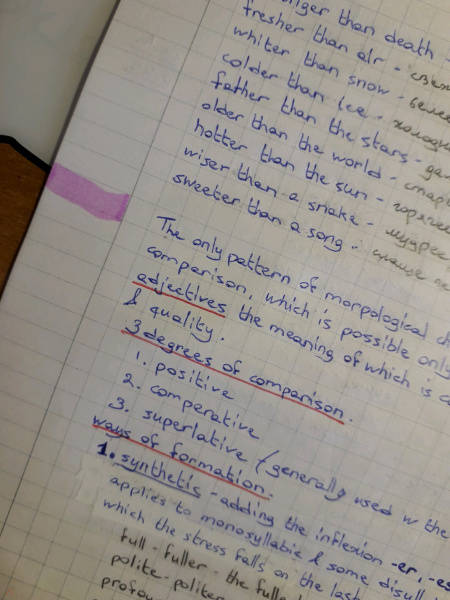 than death -
fresher than air - свеж
whiter than snow - белее
colder than ice - холодн
father than the stars - да
older than the world - стар
hotter than the sun - горяче
wiser then a snake - мудрее
sweeter than a song -
The only pattern of morpological
comparison, which is possible only
adjectives the meaning of which is
& quality.
3 degrees of comparison.
1. positive
2. comperative
3. superlative (generally used w the
ways of formation.
1. synthetic - adding the inflexion -er, -es
applies to monosyllabic & some disyll
which the stress falls on the last
full - fuller - the fulle
polite - politer
profou